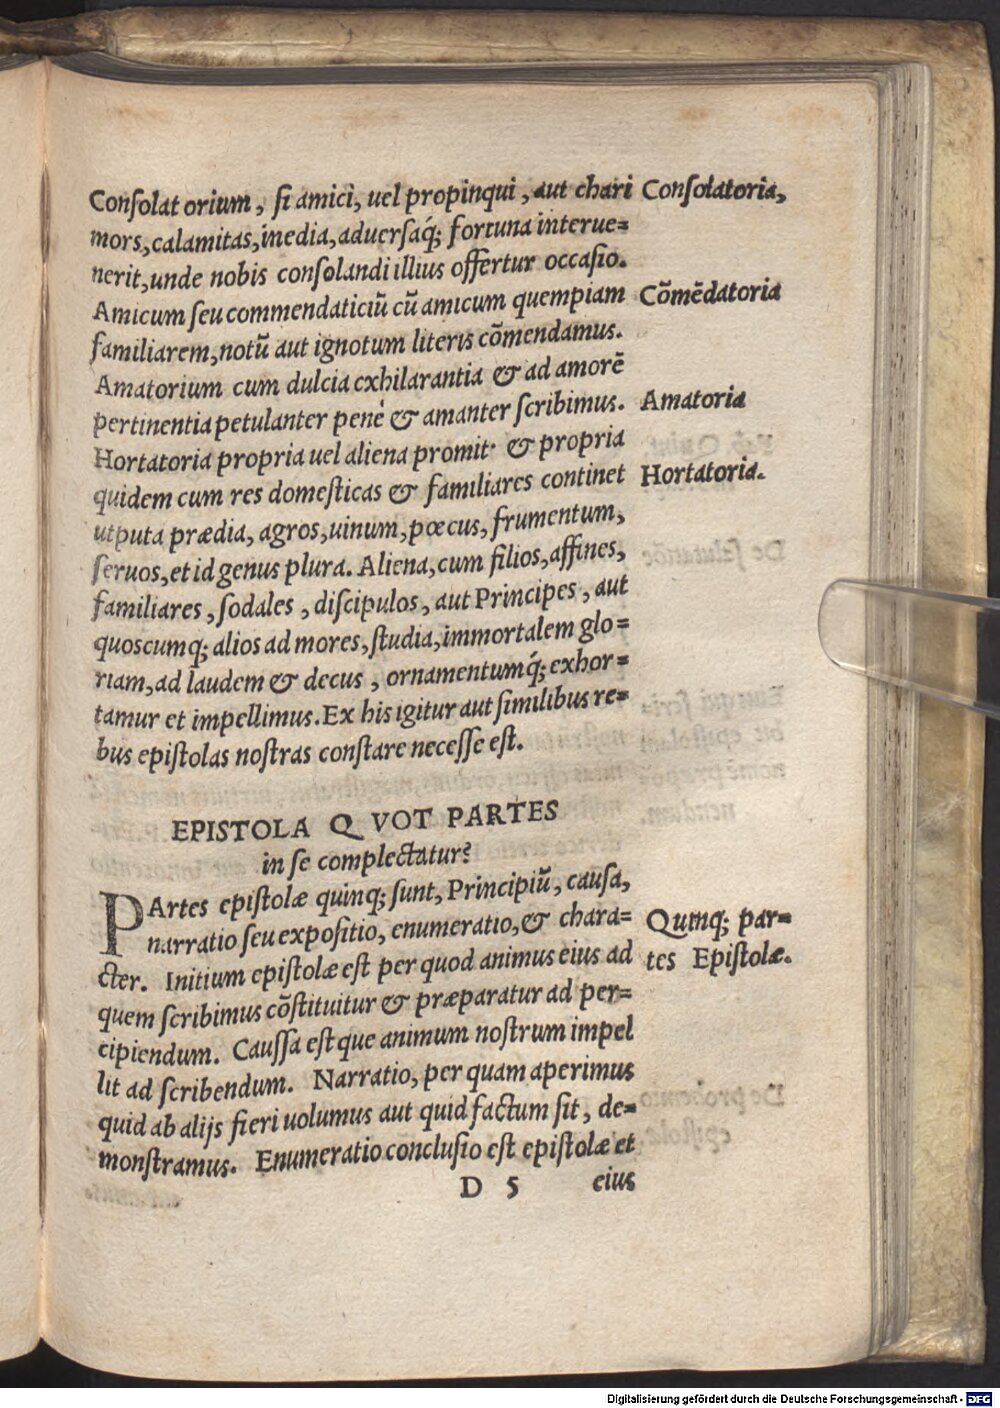 Conſolat orium, ſi amici, uel propinqui, aut chari
mors, calamitas, inedia, aduerſaq́; fortuna interue=
nerit, unde nobis conſolandi illius offertur occaſio.
Amicum ſeu commendaticiũ cũ amicum quempiam
familiarem, notũ aut ignotum literis cõmendamus.
Amatorium cum dulcia exhilarantia & ad amorẽ
pertinentia petulanter penè & amanter ſcribimus.
Hortatoria propria uel aliena promit· & propria
quidem cum res domeſticas & familiares continet
utputa prædia, agros, uinum, pœcus, frumentum,
ſeruos, et id genus plura. Aliena, cum filios, affines,
familiares, ſodales, diſcipulos, aut Principes, aut
quoscumq; alios ad mores, ſtudia, immortalem glo=
riam, ad laudem & decus, ornamentumq́; exhor=
tamur et impellimus. Ex his igitur aut ſimilibus re=
bus epiſtolas noſtras conſtare neceſſe eſt.
Conſolatoria,
Cõmẽdatoria
Amatoria
Hortatoria.
EPISTOLA Q VOT PARTES
in ſe complectatur?
PArtes epiſtolæ quinq; ſunt, Principiũ, cauſa,
narratio ſeu expoſitio, enumeratio, & chara=
cter. Initium epiſtolæ eſt per quod animus eius ad
quem ſcribimus cõſtituitur & præparatur ad per=
cipiendum. Cauſſa eſt que animum noſtrum impel
lit ad ſcribendum. Narratio, per quam aperimus
quid ab alijs fieri uolumus aut quid factum ſit, de=
monſtramus. Enumeratio concluſio eſt epiſtolæ et
Quinq; par=
tes Epiſtolæ.
D 5 eius
Digitalisierung gefördert durch die Deutsche Forschungsgemeinschaft - DFG